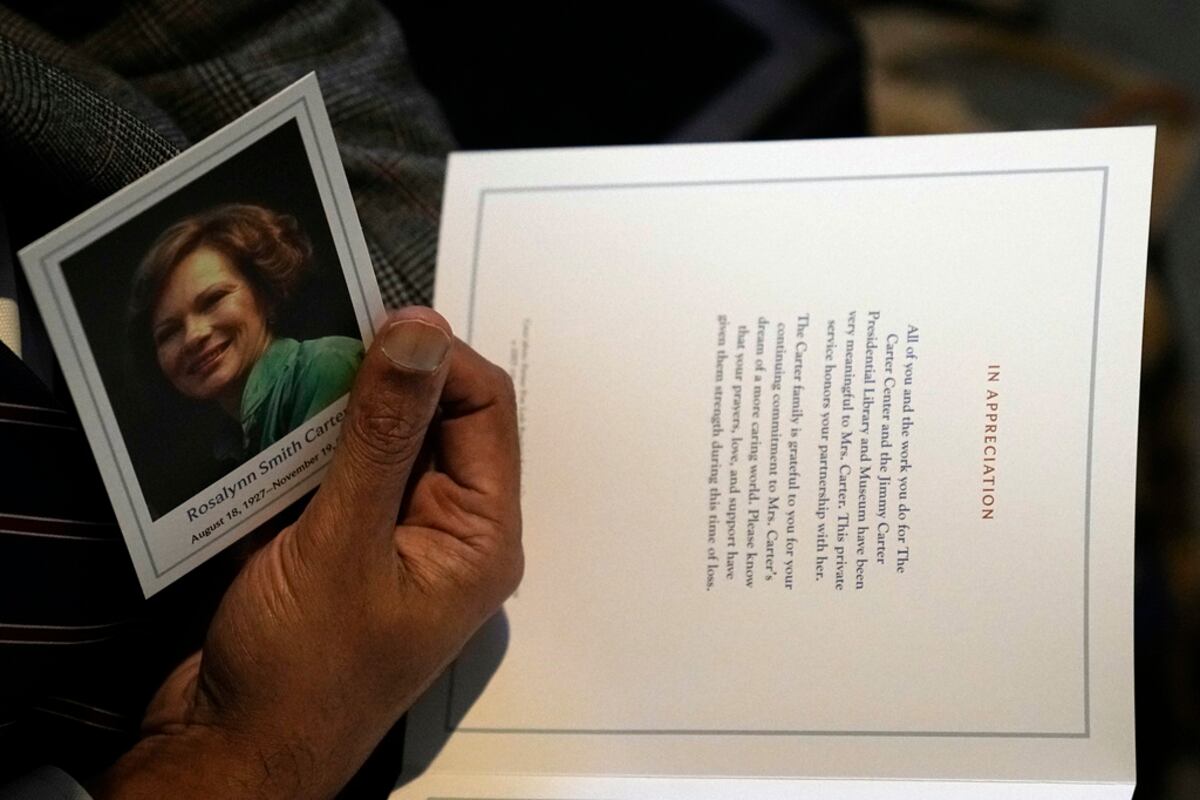 Rosalynn Smith Carter
August 18, 1927–November 19,
IN APPRECIATION
All of you and the work you do for The
Carter Center and the Jimmy Carter
Presidential Library and Museum have been
very meaningful to Mrs. Carter. This private
service honors your partnership with her.
The Carter family is grateful to you for your
continuing commitment to Mrs. Carter's
dream of a more caring world. Please know
that your prayers, love, and support have
given them strength during this time of loss.